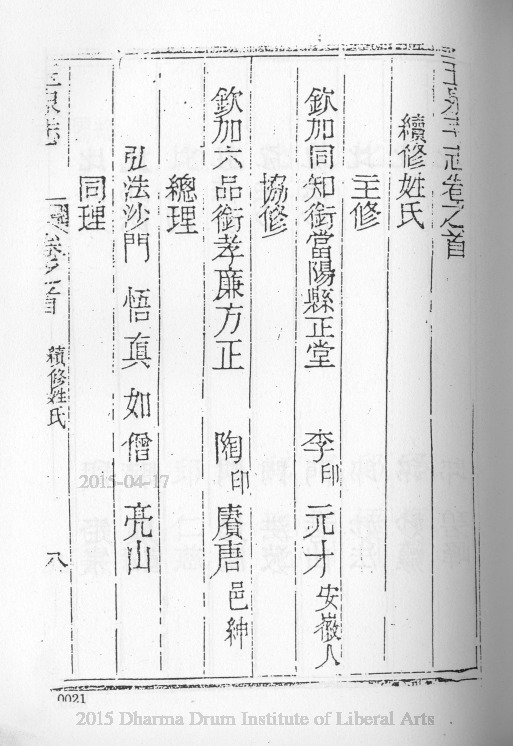 玉泉寺志卷之首
續修姓氏
主修
欽加同知銜當陽縣正堂 李印元才 安徽人
協修
欽加六品銜孝廉方正 陶印賡唐 邑紳
總理
弘法沙門 悟真 如僧 亮山
同理
玉泉志 卷之首 續修姓氏 八
2015-04-17
0021
2015 Dharma Drum Institute of Liberal Arts